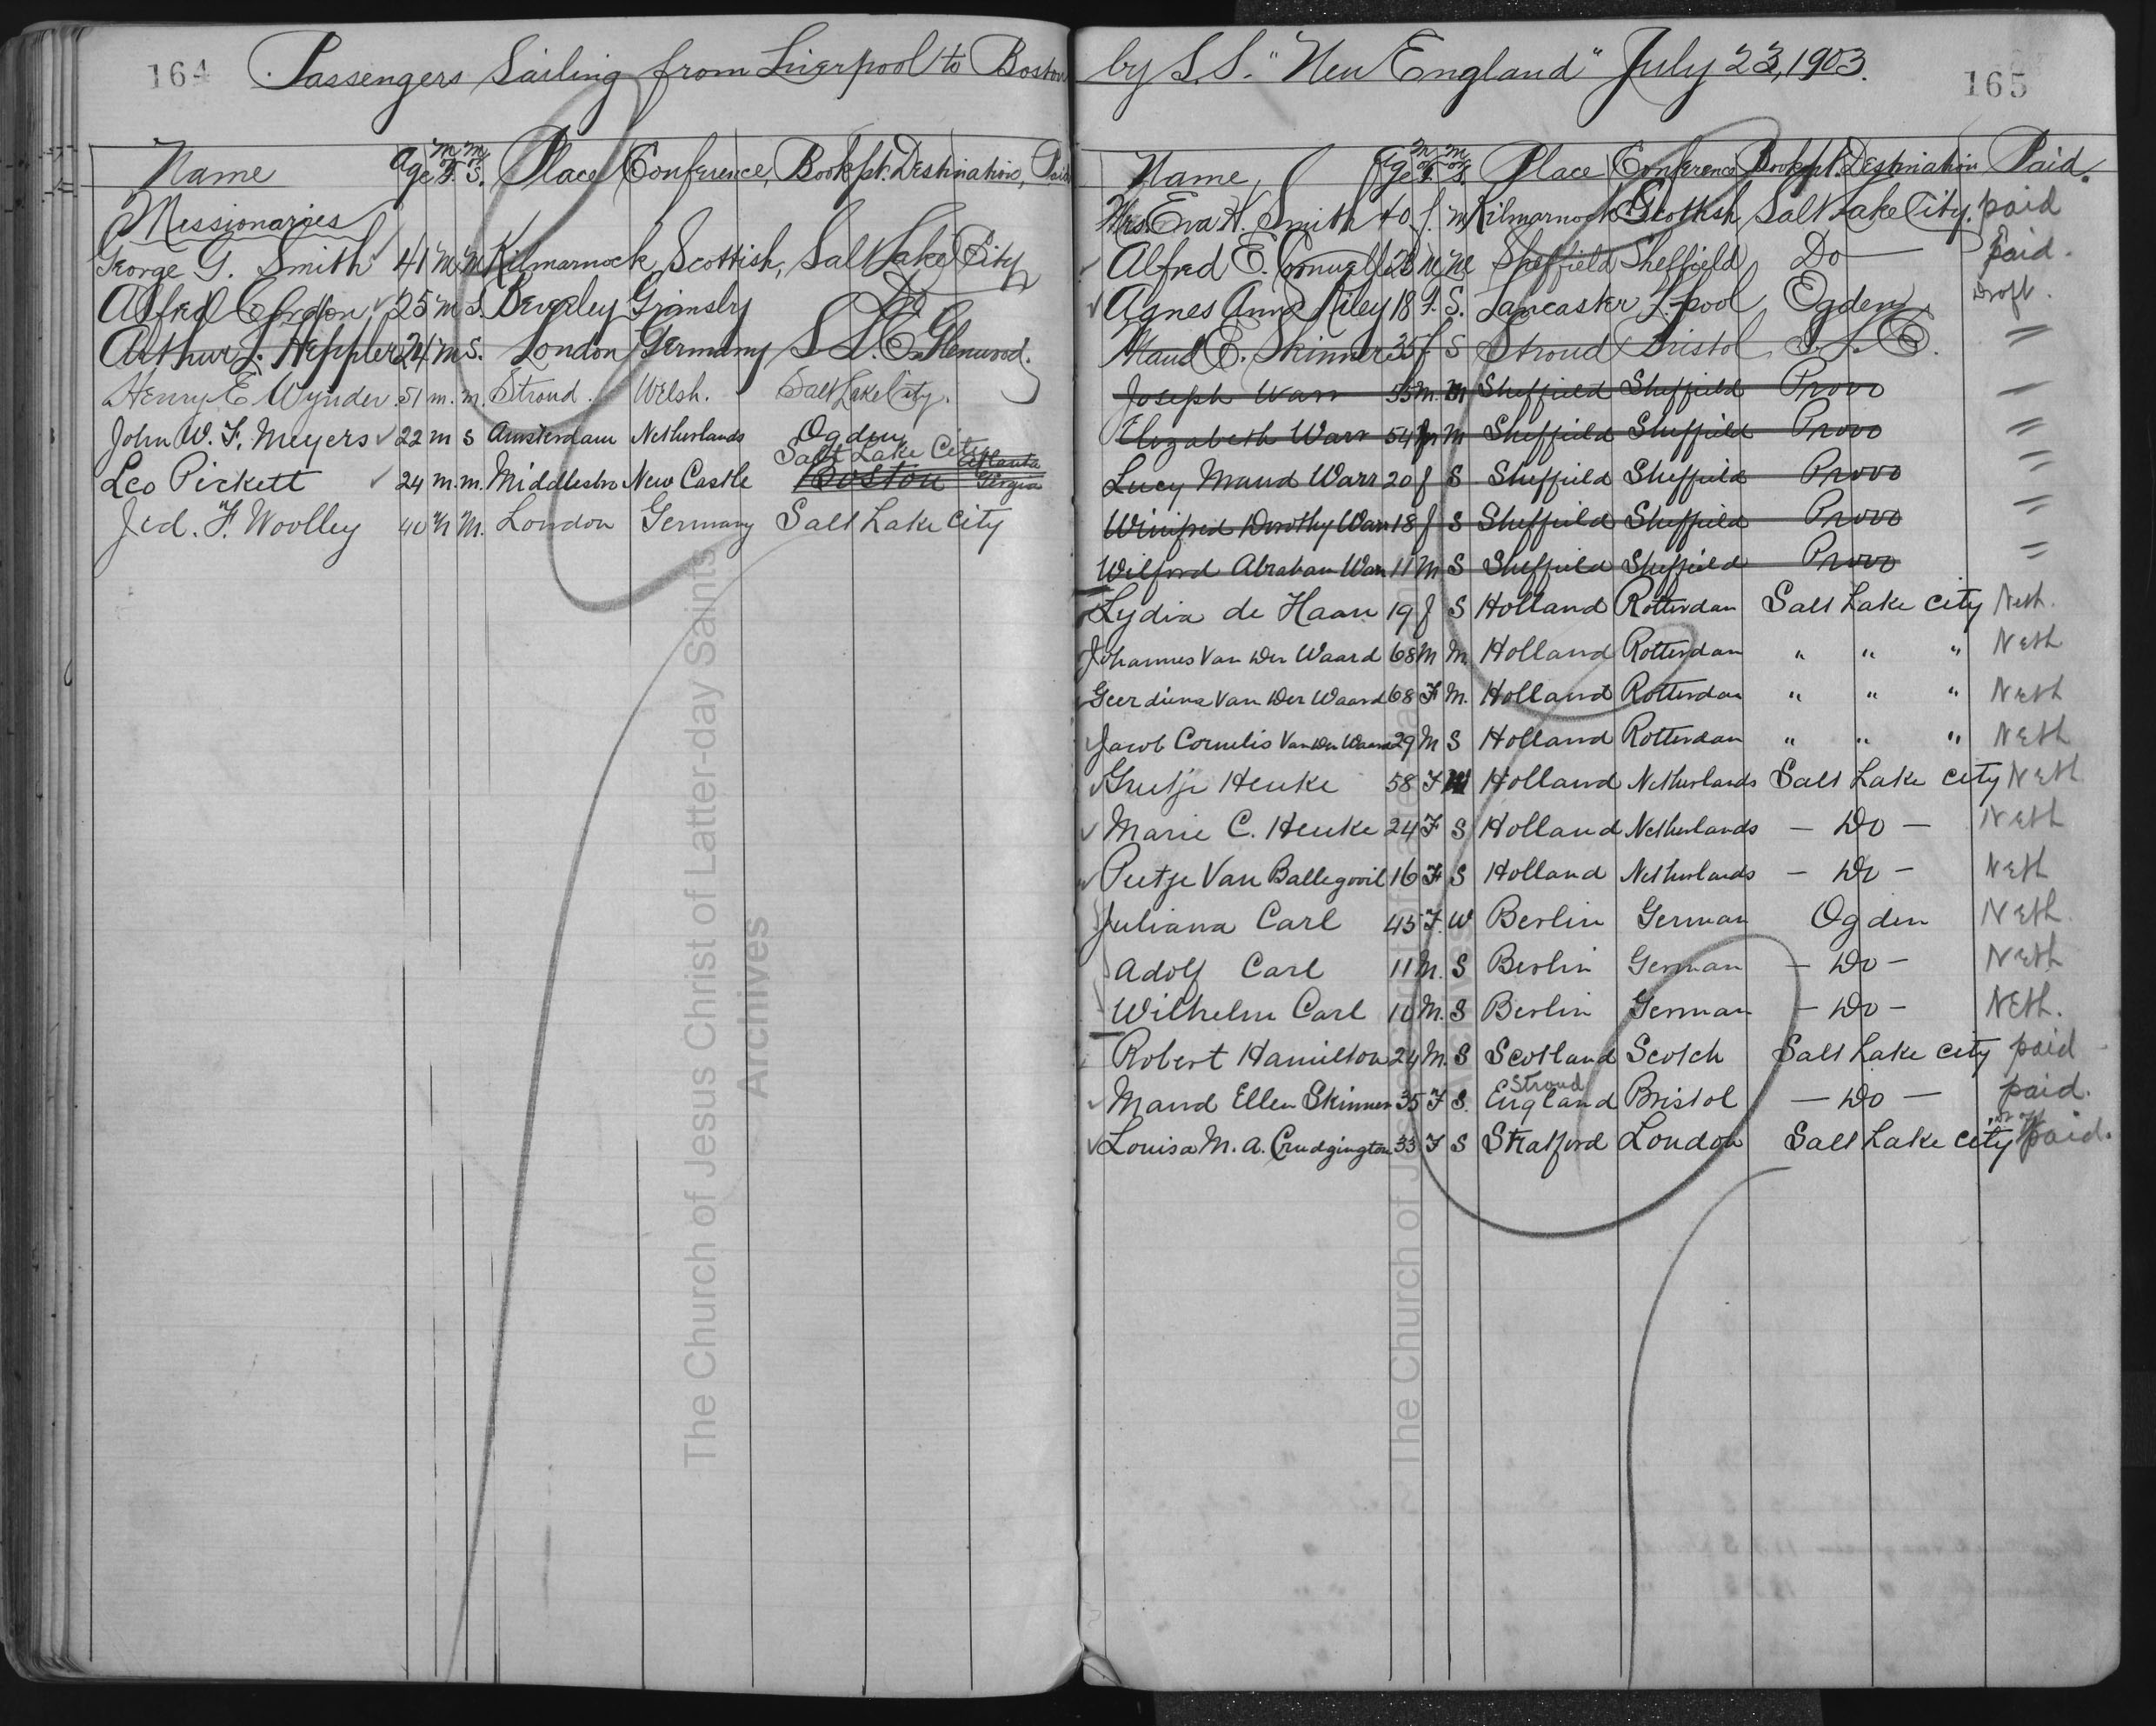 164
Passengers Sailing from Liverpool to Boston
Name Age M or F. M or S. Place Conference, Book pt. Destination, Paid
Missionaries
George G. Smith 41 m M Kilmarnock Scottish, Salt Lake City
Alfred Gordon 25 m S. Beverley Grimsby Do
Arthur J. Heppler 24 m S. London Germany S. L. C. Glenwood.
Henry E Wynder. 51 m. m. Stroud. Welsh. Salt Lake City.
John W. F. Meyers 22 m s Amsterdam Netherlands Ogden
Salt Lake City Atlanta
Leo Pickett 24 m. m. Middlesbro New Castle Boston Gergia
Jed. F. Woolley 40 M M. London Germany Salt Lake City
by S.S. "New England" July 23, 1903.
165
Name, Age M or F. M or S. Place Conference Book pt. Destination Paid.
Mrs. Eva H. Smith 40 f. m Kilmarnock Scottish Salt Lake City. paid
Alfred E. 28 M M Sheffield Sheffield Do Paid.
Agnes Ann Riley 18 F. S. Lancaster L-pool Ogden Draft.
Maud E. Skinner 35 f S Stroud Bristol S. L. C. "
Joseph Warr 55 m. m Sheffield Sheffield Provo "
Elizabeth Warr 54 M Sheffield Sheffield Provo "
Lucy Maud Warr 20 f S Sheffield Sheffield Provo "
Winifred Dorothy Warr 18 f S Sheffield Sheffield Provo "
Wilford Abraham Warr 11 M S Sheffield Sheffield Provo "
Lydia de Haan 19 f S Holland Rotterdam Salt Lake City Neth.
Johannes Van Der Waard 68 M M Holland Rotterdam " " " Neth
Geerdiena Van Der Waard 68 F M. Holland Rotterdam " " " Neth
Jacob Cornelis Van der Waard 29 M S Holland Rotterdam " " " Neth
Grietje Heuke 58 F W Holland Netherlands Salt Lake City Neth
Marie C. Heuke 24 F S Holland Netherlands — Do — Neth
Pietje Van 16 F S Holland Netherlands — Do — Neth
Juliana Carl 45 F. W Berlin German Ogden Neth.
Adolf Carl 11 M. S Berlin German — Do — Neth
Wilhelm Carl 10 M. S Berlin German — Do — Neth.
Robert Hamilton 24 M. S Scotland Scotch Salt Lake City paid
Stroud
Maud Ellen Skinner 35 F S. England Bristol — Do — paid.
Louisa M. A. Crudgington 33 F S Stratford London Salt Lake City paid.
The Church of Jesus Christ of Latter-day Saints
Archives
The Church of Jesus Christ of Latter-day Saints
Archives